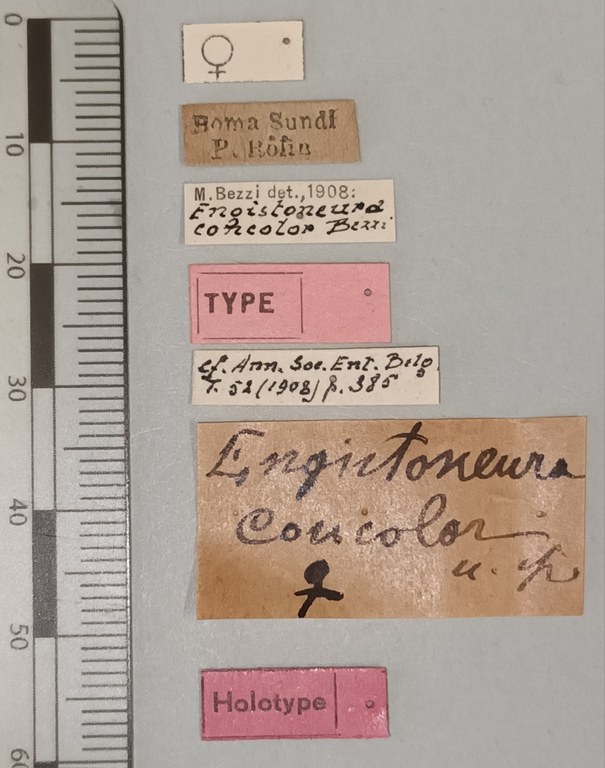 0
10
20
30
40
50
60
♀
Boma Sundi
P. Rolin
M. Bezzi det., 1908:
Engistoneura
concolor Bezzi
TYPE
cf. Ann. Soc. Ent. Belg.
T. 52 (1908) p. 385
Engistoneura
concolor
n. sp
♀
Holotype